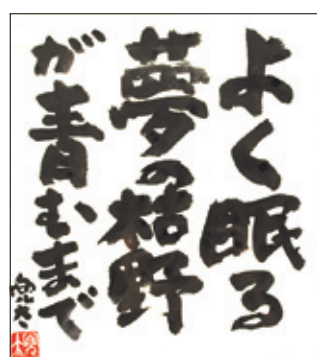 よく眠る
夢の枯野
が青むまで
兜太